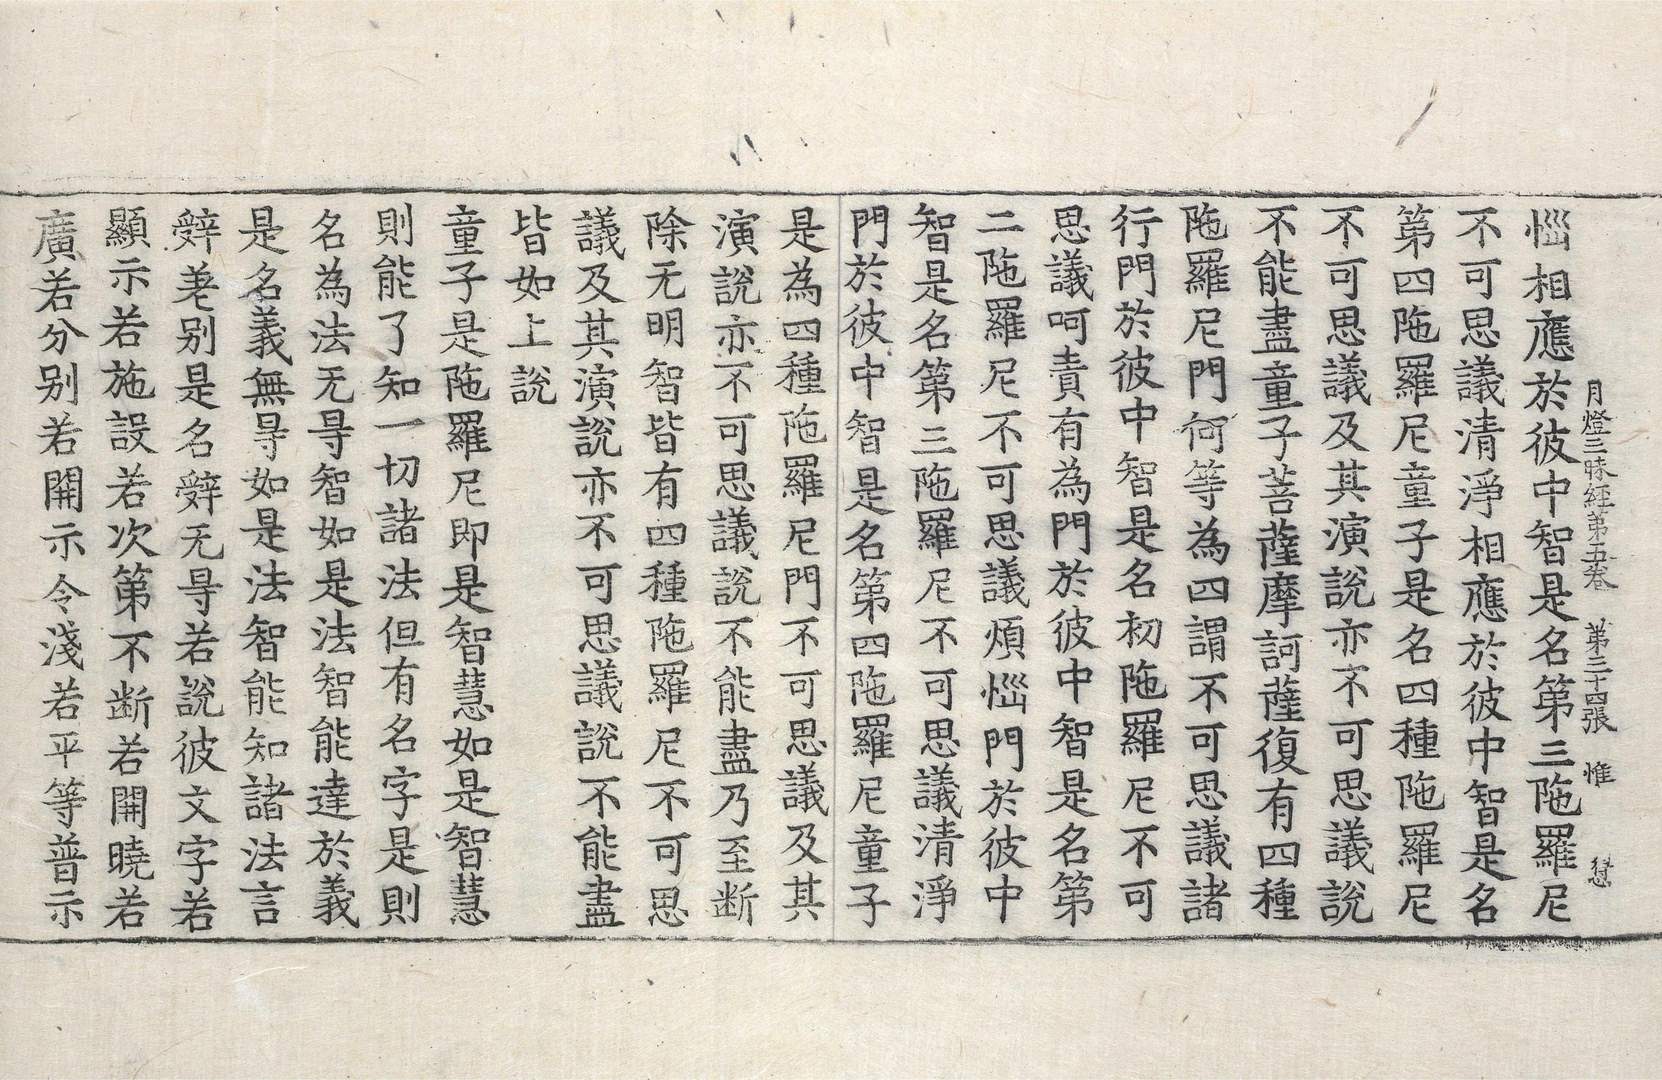 月燈三昧經第五卷 第三十四張 惟
惱相應於彼中智是名第三陁羅尼
不可思議清淨相應於彼中智是名
第四陁羅尼童子是名四種陁羅尼
不可思議及其演說亦不可思議說
不能盡童子菩薩摩訶薩復有四種
陁羅尼門何等為四謂不可思議諸
行門於彼中智是名初陁羅尼不可
思議呵責有為門於彼中智是名第
二陁羅尼不可思議煩惱門於彼中
智是名第三陁羅尼不可思議清淨
門於彼中智是名第四陁羅尼童子
是為四種陁羅尼門不可思議及其
演說亦不可思議說不能盡乃至断
除无明智皆有四種陁羅尼不可思
議及其演說亦不可思議說不能盡
皆如上說
童子是陁羅尼即是智慧如是智慧
則能了知一切諸法但有名字是則
名為法无㝵智如是法智能達於義
是名義無㝵如是法智能知諸法言
辝差别是名辝无㝵若說彼文字若
顯示若施設若次第不断若開曉若
廣若分别若開示令淺若平等普示